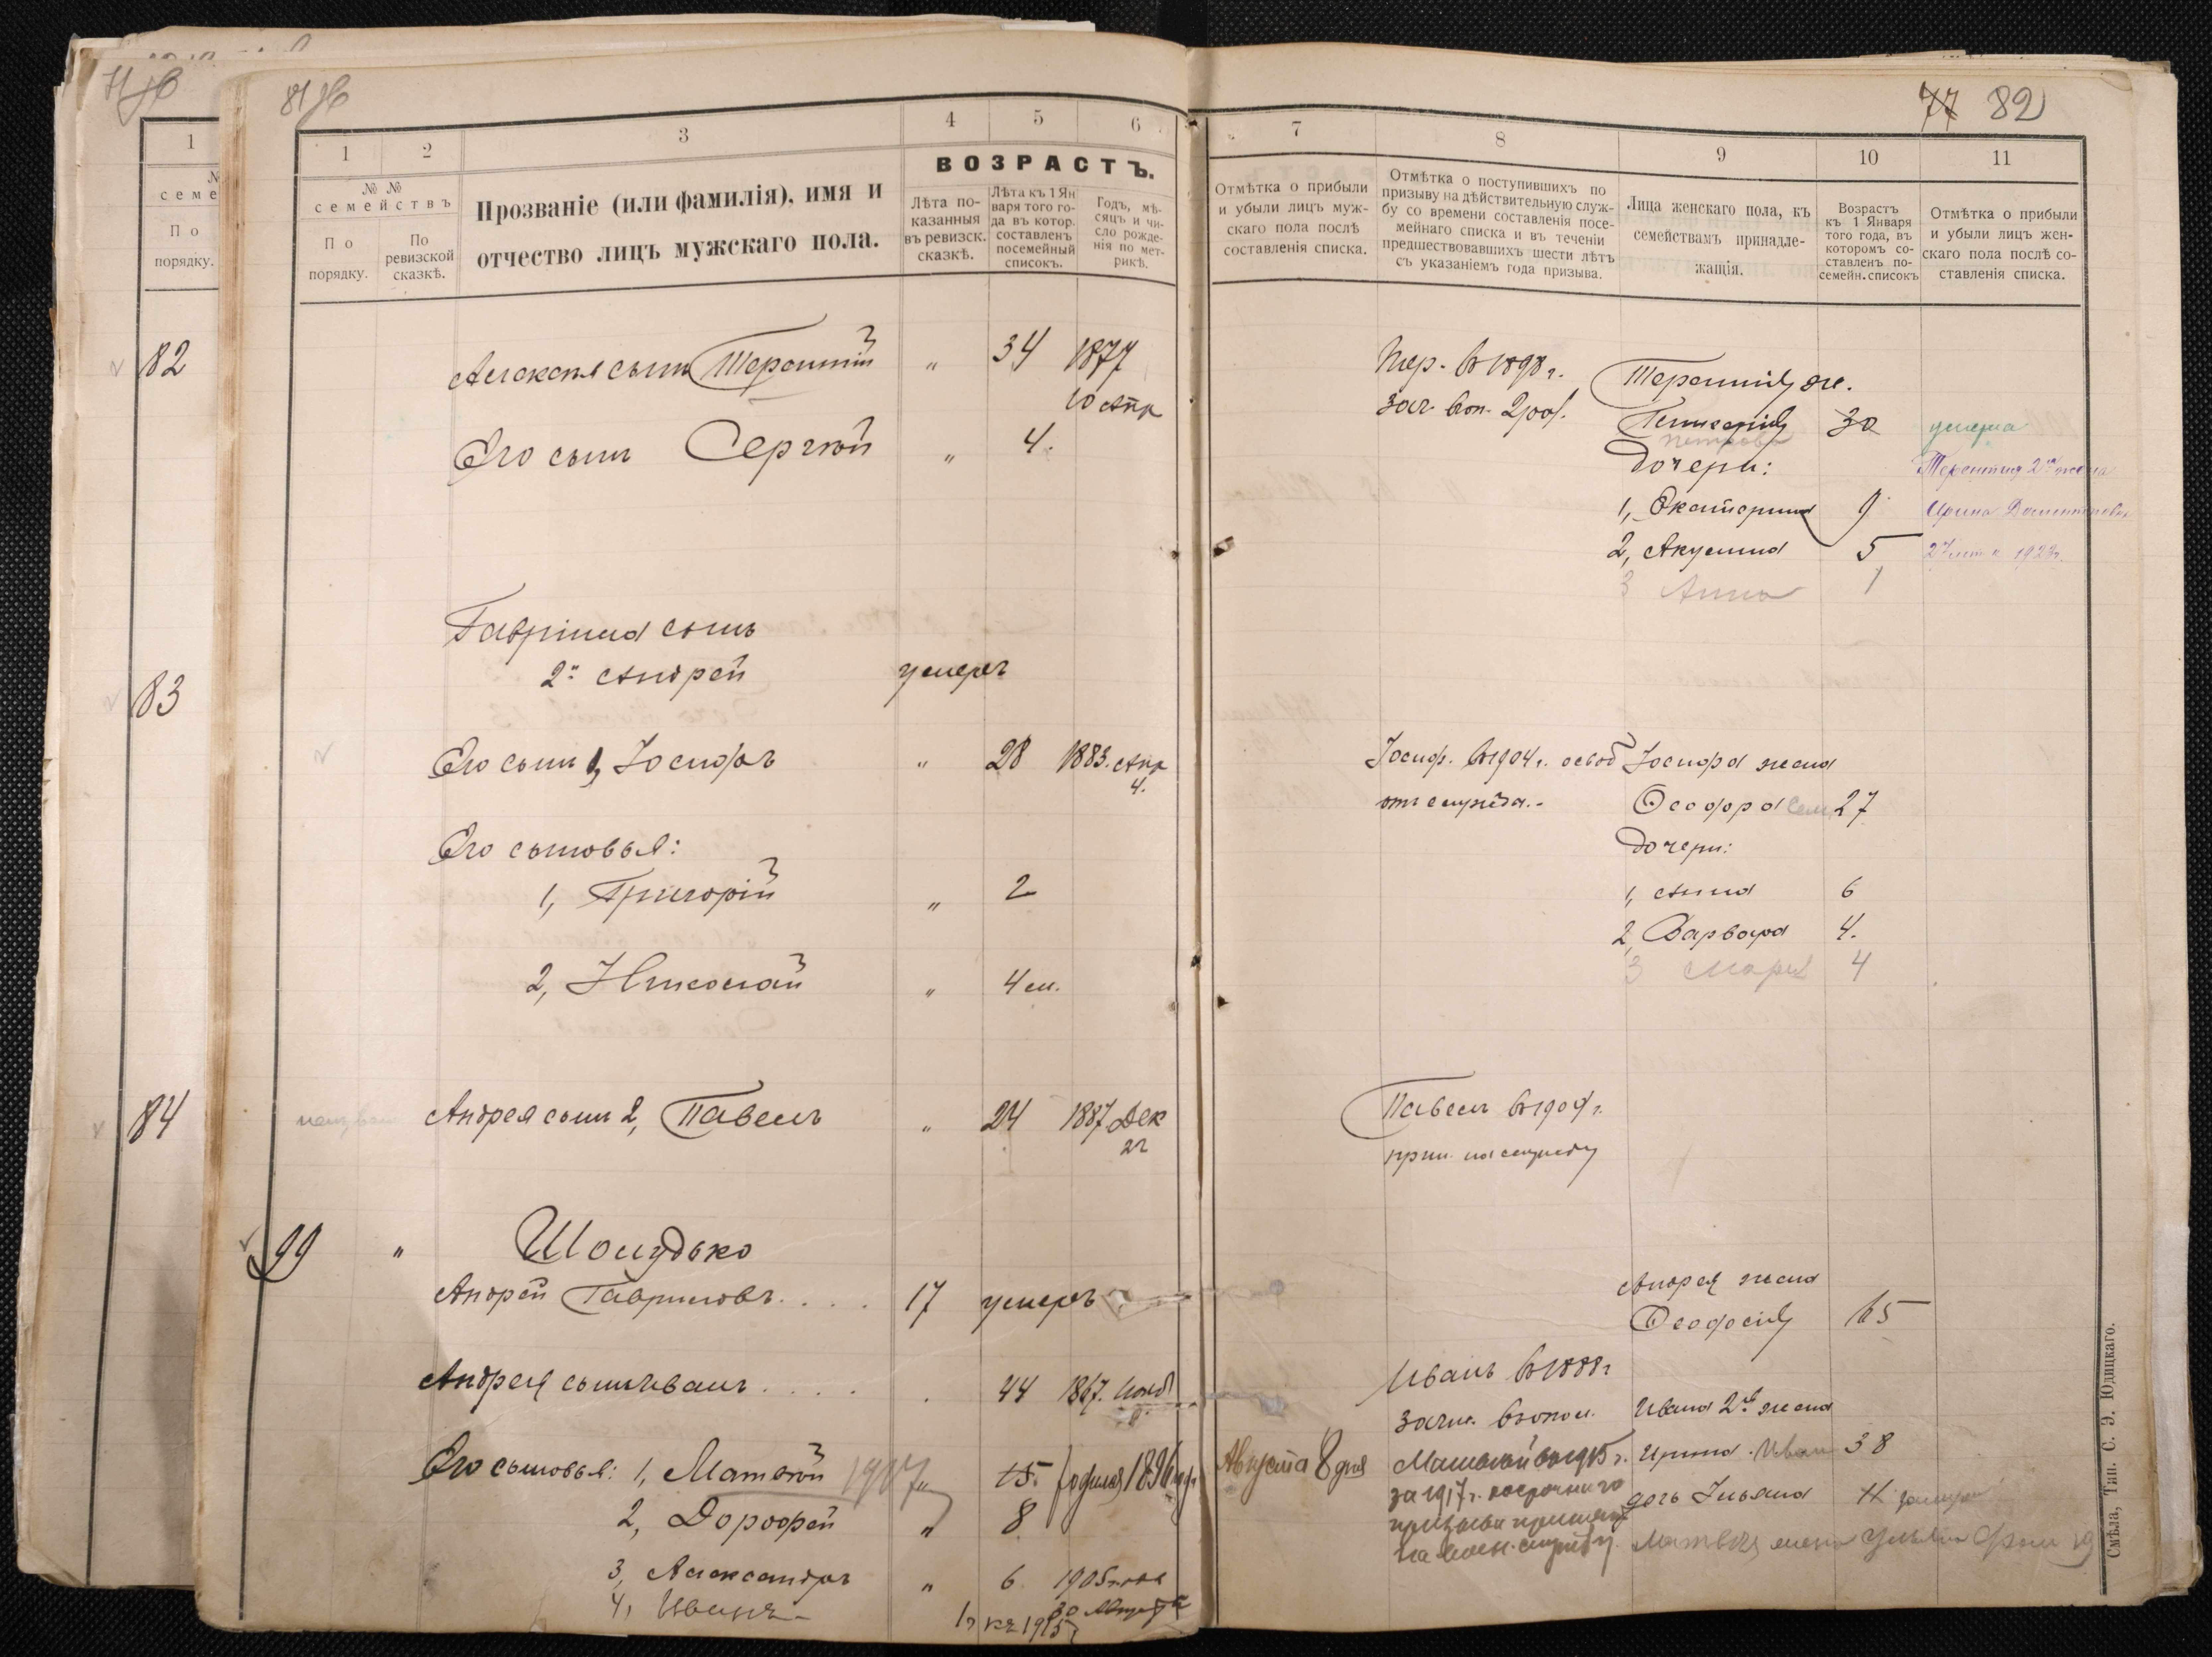 71 об
81 об
77 82
1
№
семе
По
порядку.
82
83
84
1
2
3
4
5
6
№ №
семействъ
По
порядку.
По
ревизской
сказкѣ.
Прозваніе (или фамилія), имя и
отчество лицъ мужскаго пола.
ВОЗРАСТЪ.
Лѣта по-
казанныя
въ ревизск.
сказкѣ.
Лѣта къ 1 Ян
варя того го-
да въ котор.
составленъ
посемейный
списокъ.
Годъ, мѣ-
сяцъ и чи-
сло рожде-
нія по мет-
рикѣ.
Алексѣя сынъ Терентій " 34 1877
10 Апр
Его сынъ Сергѣй " 4.
Гавріила сынъ
2й Андрей умеръ
Его сынъ 1, Іосифъ " 28 1883. Апр
4.
Его сыновья:
1, Григорій " 2
2, Николай " 4 м.
Андрея сынъ 2, Павелъ " 24 1887 Дек
22
99 " Шолудько
Андрей Гавриловъ.... 17 умеръ
Андрея сынъ Иванъ.... 44 1867. Нояб
8
Его сыновья: 1, Матвѣй 1917 " 15. родился 1896 г.
2, Дорофей " 8
3, Александръ " 6 1905 года
30 Августа
4, Иванъ 1 къ 1915
7
8
9
10
11
Отмѣтка о прибыли
и убыли лицъ муж-
скаго пола послѣ
составленія списка.
Отмѣтка о поступившихъ по
призыву на дѣйствительную служ-
бу со времени составленія посе-
мейнаго списка и въ теченіи
предшествовавшихъ шести лѣтъ
съ указаніемъ года призыва.
Лица женскаго пола, къ
семействамъ принадле-
жащія.
Возрастъ
къ 1 Января
того года, въ
которомъ со-
ставленъ по-
семейн. списокъ
Отмѣтка о прибыли
и убыли лицъ жен-
скаго пола послѣ со-
ставленія списка.
Тер. въ 1898 г.
зач. въ оп. 2 раз.
Терентія ж.
Гликерія 30 умерла
Петрова
Дочери:
Терентия 2я жена
1, Екатерина 9
Ирина
2, Акулина 5
27 лет к 192
3 Анна 1
Іосиф. въ 1904 г. освоб
отъ службы.-
Іосифа жена
Ѳеофра Сем 27
дочери:
1, Анна 6
2, Варвара 4.
3 Марія 4
Павелъ въ 1909 г.
прин. на службу
Андрея жена
Ѳеодосія 65
Иванъ въ 1888 г
зачис. въ ополч.
Ивана 2я жена
Ирина Иван 38
Августа 8 дня
Матвѣй въ 1915 г.
за 1917 г. досрочнаго
призыва принятъ
на воен. службу.
дочь Ульяна 11 замуж
Матвѣя жена Ульяна 19
Смѣла, Тип. С. Э. Юдицкаго.